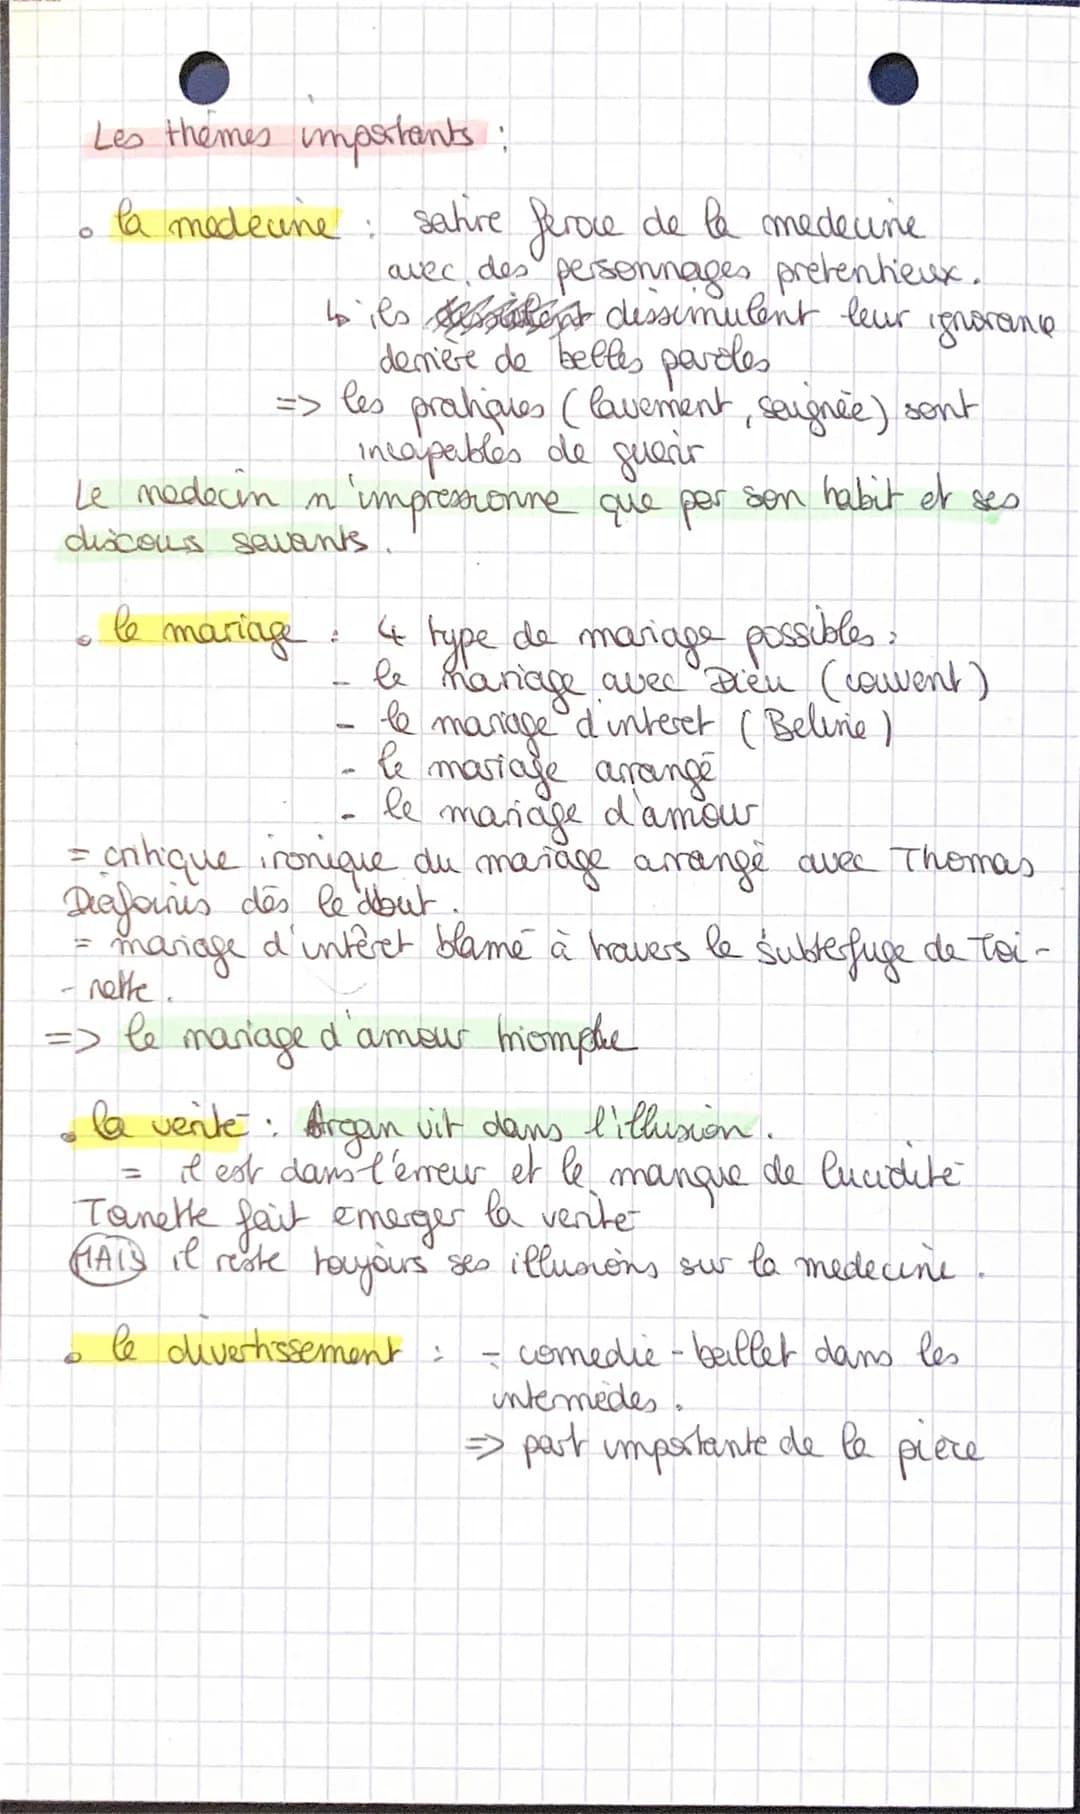 Les thèmes importants :
• la medecine : satire feroce de la medecine
avec des personnages pretentieux.
↳ ils dissimulent leur ignorance
derrière de belles paroles
=> les pratiques (lavement, saignée) sont
incapables de guerir
Le medecin n'impressionne que par son habit et ses
discous savants.
• le mariage : 4 type de mariage possibles :
- le mariage avec Dieu (couvent)
- le mariage d'interet (Beline)
- le mariage arrangé
- le mariage d'amour
= critique ironique du mariage arrangé avec Thomas
Diafoirus dès le debut.
= mariage d'intêret blamé à travers le subterfuge de Toi-
- nette.
=> le mariage d'amour triomphe
• la verité : Argan vit dans l'illusion.
= il est dans l'erreur et le manque de lucidité
Toinette fait emerger la verité
MAIS il reste toujours ses illusions sur la medecine.
• le divertissement : = comedie-ballet dans les
intermèdes.
=> part importante de la pièce